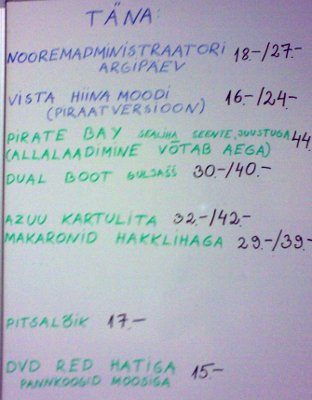 TÄNA:
NOOREMADMINISTRAATORI 18.-/27.-
ARGIPAEV
VISTA HIINA MOODI 16.-/24.-
(PIRAATVERSIOON)
PIRATE BAY SEALIHA SEENTE, JUUSTUGA 44
(ALLALAADIMINE VÕTAB AEGA)
DUAL BOOT GULJAŠŠ 30.-/40.-
AZUU KARTULITA 32.-/42.-
MAKARONID HAKKLIHAGA 29.-/39.-
PITSALÕIK 17.-
DVD RED HATIGA 15.-
PANNKOOGID MOOSIGA